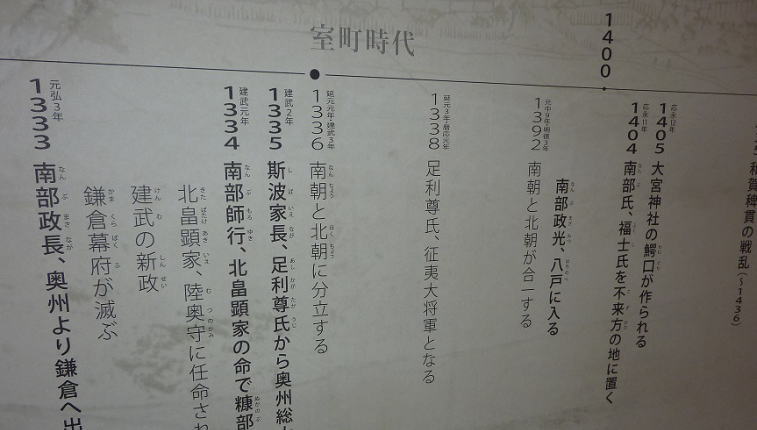 室町時代
1400
元弘3年
1333 南部政長、奥州より鎌倉へ出
鎌倉幕府が滅ぶ
建武の新政
北畠顕家、陸奥守に任命され
建武元年
1334 南部師行、北畠顕家の命で糠部
建武2年
1335 斯波家長、足利尊氏から奥州総
延元元年・建武3年
1336 南朝と北朝に分立する
延元3年・暦応元年
1338 足利尊氏、征夷大将軍となる
元中9年・明徳3年
1392 南朝と北朝が合一する
南部政光、八戸に入る
応永11年
1404 南部氏、福士氏を不来方の地に置く
応永12年
1405 大宮神社の鰐口が作られる
和賀稗貫の戦乱（〜1436）